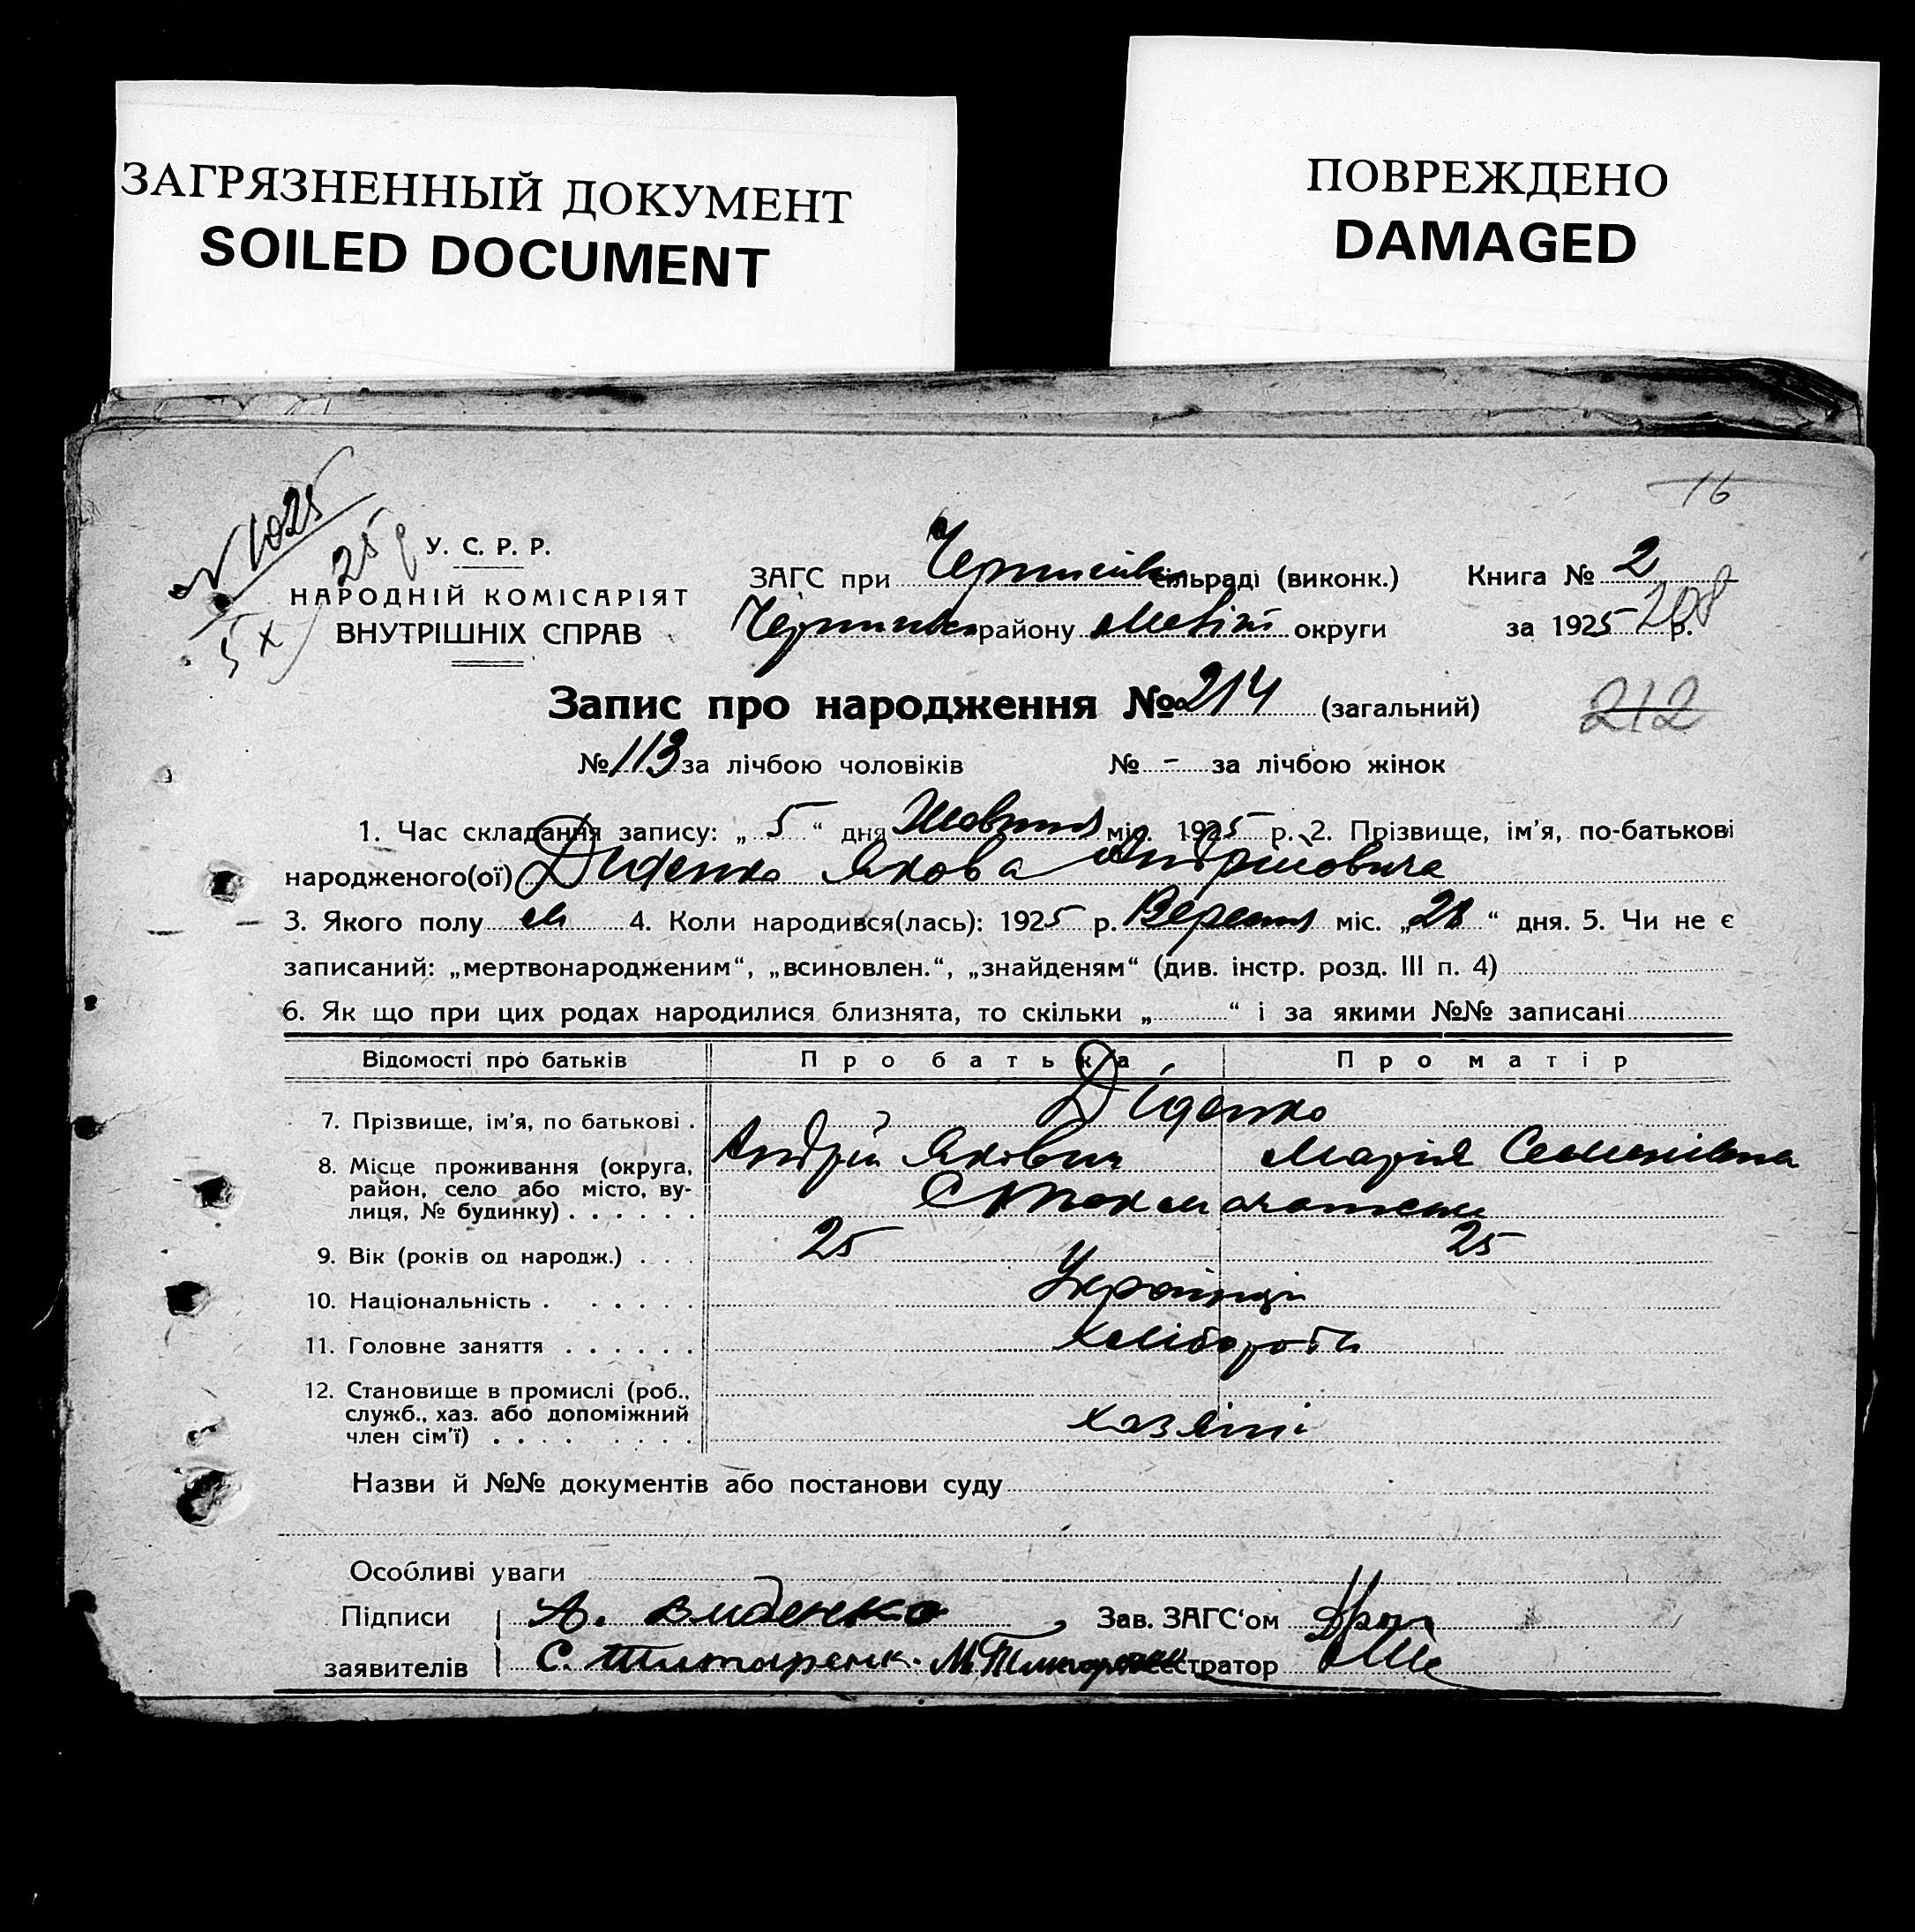 ЗАГРЯЗНЕННЫЙ ДОКУМЕНТ
SOILED DOCUMENT
ПОВРЕЖДЕНО
DAMAGED
16
№ 1025
25
5 X
У. С. Р. Р.
НАРОДНІЙ КОМІСАРІЯТ
ВНУТРІШНІХ СПРАВ
ЗАГС при сільраді (виконк.) Книга № 2
району округи за 1925 р. 208
Запис про народження № 214 (загальний)
212
№ 113 за лічбою чоловіків № - за лічбою жінок
1. Час складання запису: „ 5 “ дня Жовтня міс. 1925 р. 2. Прізвище, ім’я, по-батькові
народженого(ої) Діденко Якова Андрійовича
3. Якого полу м 4. Коли народився(лась): 1925 р. Вересня міс. „28“ дня. 5. Чи не є
записаний: „мертвонародженим“, „всиновлен.“, „знайденям“ (див. інстр. розд. III п. 4)
6. Як що при цих родах народилися близнята, то скільки „ “ і за якими №№ записані
Відомості про батьків Про батька Про матір
7. Прізвище, ім’я, по батькові . Діденко
Андрій Якович Марія Семенівна
8. Місце проживання (округа,
район, село або місто, ву-
лиця, № будинку) . . . . . .
9. Вік (років од народж.) . . . 25 25
10. Національність . . . . . . Українці
11. Головне заняття . . . . . . хлібороби
12. Становище в промислі (роб.,
служб., хаз. або допоміжний
член сім’ї) . . . . . . . . хазяїни
Назви й №№ документів або постанови суду
Особливі уваги
Підписи А. Диденко Зав. ЗАГС‘ом
заявителів С. М. реєстратор